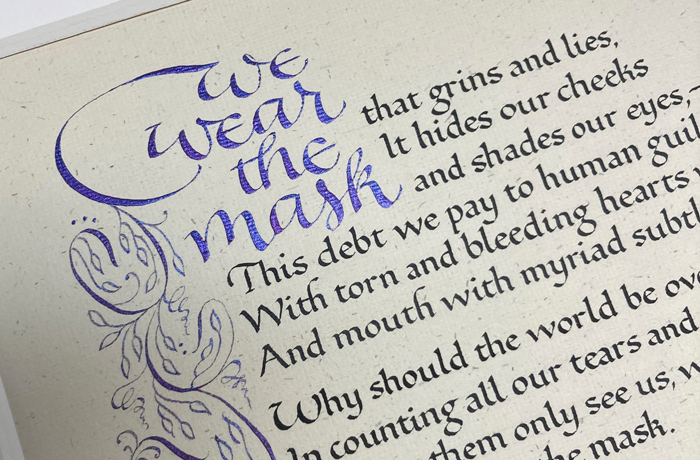 we
wear
the
mask
that grins and lies,
It hides our cheeks
and shades our eyes,
This debt we pay to human
With torn and bleeding hearts
And mouth with myriad
Why should the world be
In counting all our tears and
them only see us,
mask.